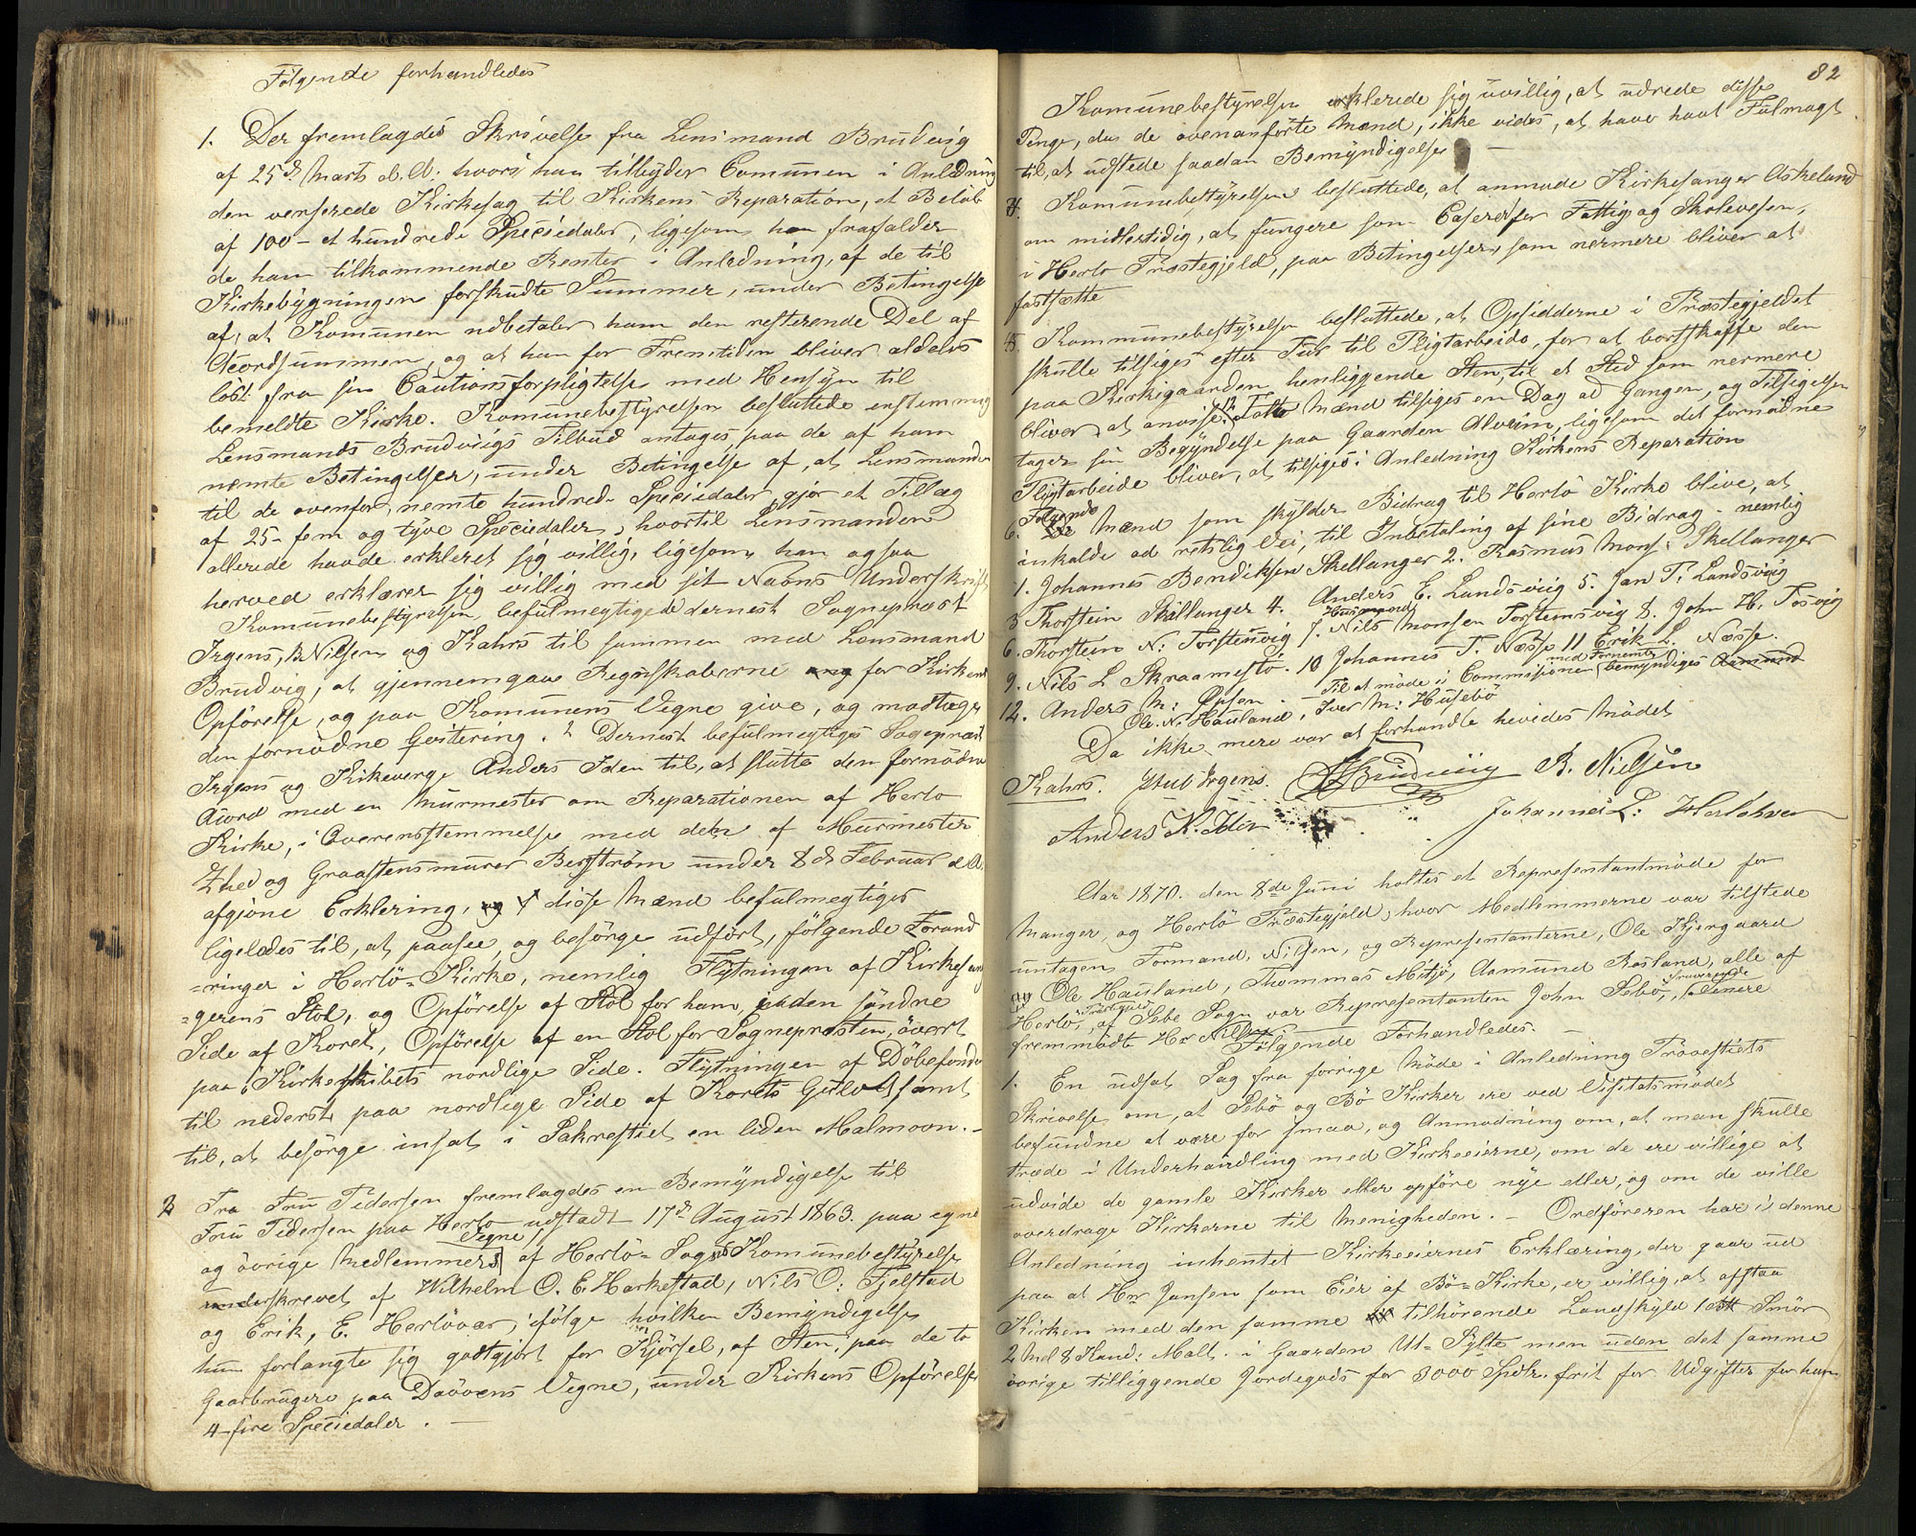 Følgende forhandledes
1. Der fremlagdes Skrivelse fra Lensmand Brudvig
af 25de Marts d. A: hvori han tilbyder Comunen i Anledning
den verserede Kirkesag til Kirkens Reparation, et Beløb
af 100 - et hundrede Speciedaler, ligesom han frafalder
de ham tilkommende Renter i Anledning, af de til
Kirkebygningen forskudte Summer, under Betingelse
af, at Komunen udbetaler ham den resterende Del af
Acordsummen, og at han for Fremtiden bliver aldeles
løst fra sin Cautionsforpligtelse med Hensyn til
bemeldte Kirke. Komunebestyrelsen besluttede enstemmig
Lensmands Brudvigs Tilbud antages, paa de af ham
nemte Betingelser, under Betingelse af, at Lensmanden
til de ovenfor nemte hundrede Speciedaler gjør et Tillæg
af 25 - fem og tyve Speciedaler, hvortil Lensmanden
allerede havde erkleret sig villig, ligesom han ogsaa
herved erklærer sig villig med sit Navns Underskrift
Komunebestyrelsen befulmegtigede dernest Sogneprest
Irgens, B. Nilsen og Kahrs til sammen med Lensmand
Brudvig, at gjennemgaa Regnskaberne for Kirkens
Opførelse, og paa Komunens Vegne give, og modtage
den fornødne Qvitering. 2 Dernest befulmegtiges Sogneprest
Irgens og Kirkeverge Anders Iden til, at slutte den fornødne
Acord med en Murmester om Reparationen af Herlø
Kirke, i Overensstemmelse med den af Murmester
Zhed og Graastensmurer Bergstrøm under 8de Februar d. A.
afgivne Erklering, og disse Mænd befulmegtiges
ligeledes til, at paasee, og besørge udført, følgende Forand
=ringer i Herlø=Kirke, nemlig Flytningen af Kirkesan
=gerens Stol, og Opførelse af Stol for ham, inden søndre
Side af Koret, Opførelse af en Stol for Sognepresten, øverst
paa Kirkeskibets nordlige Side. Flytningen af Døbefonden
til nederst paa nordlige Side af Korets Gulv samt
til, at besørge insat i Sakrestiet en liden Malmovn. -
3 Fra Fru Tidersen fremlagdes en Bemyndigelse til
Fru Tidersen paa Herlø udstadt 17de August 1863. paa egne
Vegne
og øvrige Medlemmers af Herlø= Sogns Komunebestyrelse
underskrevet af Wilhelm O. E. Harkestad, Nils O: Fjelstad
og Erik, E. Herløvær, ifølge hvilken Bemyndigelse
hun forlangte sig godtgjort for Kjørsel, af Sten, paa de to
Gaarbrugere paa Davøens Vegne, under Kirkens Opførelse
4 - fire Speciedaler. -
82
Komunebestyrelsen erklerede sig uvillig, at udrede disse
Penge, da de ovenanførte Mænd, ikke vides, at have havt Fulmagt
til, at udstede saadan Bemyndigelse -
4. Komunebestyrelsen besluttede, at anmode Kirkesanger Askeland
om midlertidig, at fungere som Caserer for Fattig og Skolevesen,
i Herlø Præstegjeld, paa Betingelser, som nermere bliver at
fastsætte
5. Kommunebestyrelsen besluttede, at Opsidderne i Præstegjeldet
skulle tilsiges efter Tur til Pligtarbeide, for at bortskaffe den
paa Kirkegaarden henliggende Sten, til et Sted som nermere
bliver at anvise. 12 Mænd tilsiges en Dag ad Gangen, og Tilsigelsen
tager sin Begyndelse paa Gaarden Alveim, ligesom det fornødne
Pligtarbeide bliver, at tilsiges i Anledning Kirkens Reparation
Følgende
6. De Mænd som skylder Bidrag til Herlø Kirke blive, at
inkalde ad retslig Vei, til Inbetaling af sine Bidrag - nemlig
1. Johannes Bendiksen Skellanger 2. Rasmus Mons: Skellanger
3 Thorstein Skellanger 4. Anders E. Landsvig 5. Jan P. Landsvig
Husmand
6. Thorstein N: Torstensvig 7. Nils Monsen Torstensvig 8. John H. Tosvig
9. Nils L Skraamestø. 10 Johannes T. Næsse 11 Erik L Næsse.
med Fornemte
12. Anders M: Ypsøn - Til at møde i Commisjonen bemyndiges Asmund
Ole N. Hauland, Iver M: Husebø
Da ikke mere var at forhandle hevedes Mødet
Kahrs. Stub Irgens. Brudvig B. Nielsen
Anders K. Iden Johannes L: Herløvær
Aar 1870. den 8de Juni holtes et Representantmøde for
Manger, og Herlø Præstegjeld, hvor Medlemmerne var tilstede
untagen Formand, Nilsen, og Representanterne, Ole Kjergaard
og Ole Hauland, Thommas Mitjø, Aamund Rosland, alle af
Herlø, af Sebø Sogn var Representanten John Sebø, fraværende
senere
fremmødt Hr Nilsen
Følgende Forhandledes. -
1. En udsat Sag fra forrige Møde i Anledning Provestiets
Skrivelse om, at Sebø og Bø Kirker ere ved Visitatsmødet
befundne at være for smaa, og Anmodning om, at man skulle
træde i Underhandling med Kirkeeierne, om de ere villige at
udvide de gamle Kirker eller opføre nye eller, og om de ville
overdrage Kirkerne til Menigheden. - Ordføreren har i denne
Anledning inhentet Kirkeeiernes Erklæring, der gaar ud
paa at Hr Jansen som Eier af Bø=Kirke, er villig, at afstaa
Kirken med den samme tilhørende Landskyld 1 Smør
2 Mel 8 Kand: Malt. i Gaarden Ut=Sylte men uden det samme
øvrige tilliggende Jordegods for 3000 Spdlr. frit for Udgifter for ham